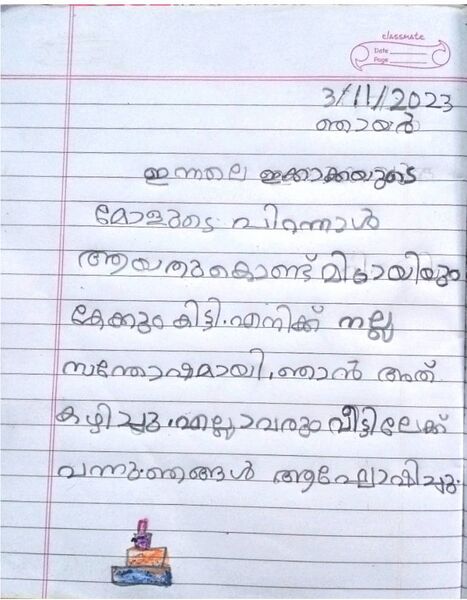 classmate
Date
Page
3/11/2023
ഞായർ
ഇന്നലെ ഇക്കാക്കയുടെ
മോളുടെ പിറന്നാൾ
ആയതുകൊണ്ട് മിഠായിയും
കേക്കും കിട്ടി. എനിക്ക് നല്ല
സന്തോഷമായി. ഞാൻ അത്
കഴിച്ചു. എല്ലാവരും വീട്ടിലേക്ക്
വന്നു. ഞങ്ങൾ ആഘോഷിച്ചു.